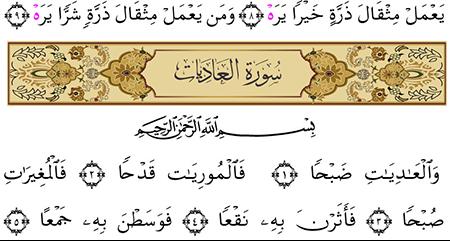 يَعْمَلْ مِثْقَالَ ذَرَّةٍ خَيْرًا يَرَهُۥ ﴿٨﴾ وَمَن يَعْمَلْ مِثْقَالَ ذَرَّةٍ شَرًّا يَرَهُۥ ﴿٩﴾
سُورَةُ الْعَادِيَاتِ
بِسْمِ اللَّهِ الرَّحْمَٰنِ الرَّحِيمِ
وَالْعَٰدِيَٰتِ ضَبْحًا ﴿١﴾ فَالْمُورِيَٰتِ قَدْحًا ﴿٢﴾ فَالْمُغِيرَٰتِ
صُبْحًا ﴿٣﴾ فَأَثَرْنَ بِهِۦ نَقْعًا ﴿٤﴾ فَوَسَطْنَ بِهِۦ جَمْعًا ﴿٥﴾